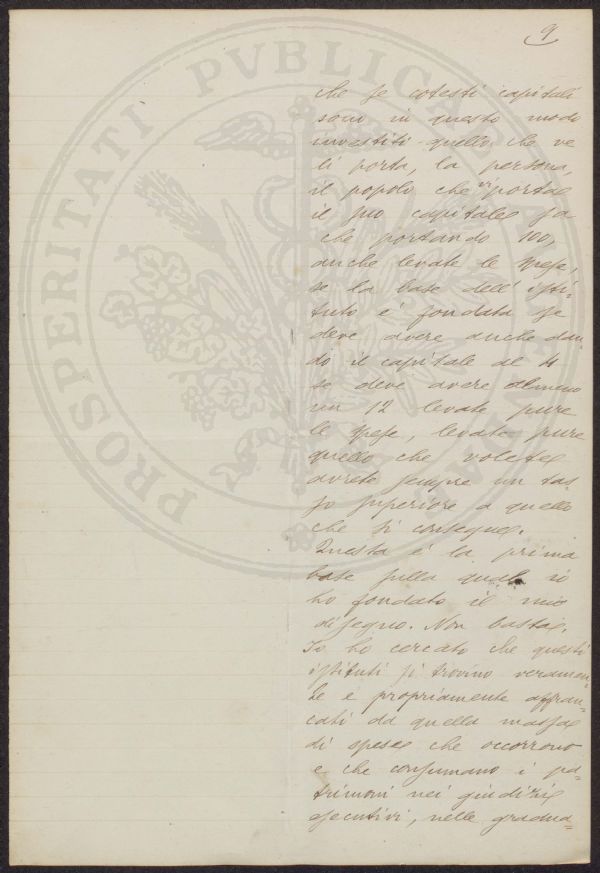 9
che se cotesti capitali
sono in questo modo
investiti quello che ve
li porta, la persona,
il popolo che vi porta
il suo capitale sa
che portando 100,
anche levate le spese,
se la base dell' isti-
tuto è fondata se
deve avere anche dan-
do il capitale al 4
se deve avere almeno
un 12 levate pure
le spese, levate pure
quello che volete
avrete sempre un tas
so superiore a quello
che si consegue.
Questa è la prima
base sulla quale io
ho fondato il mio
disegno. Non basta.
Io ho cercato che questi
istituti si trovino veramen-
te e propriamente affran-
cati da quella massa
di spese che occorrono
e che consumano i pa-
trimoni nei giudizi
esecutivi, nelle gradua-
PROSPERITATI PVBLICAE